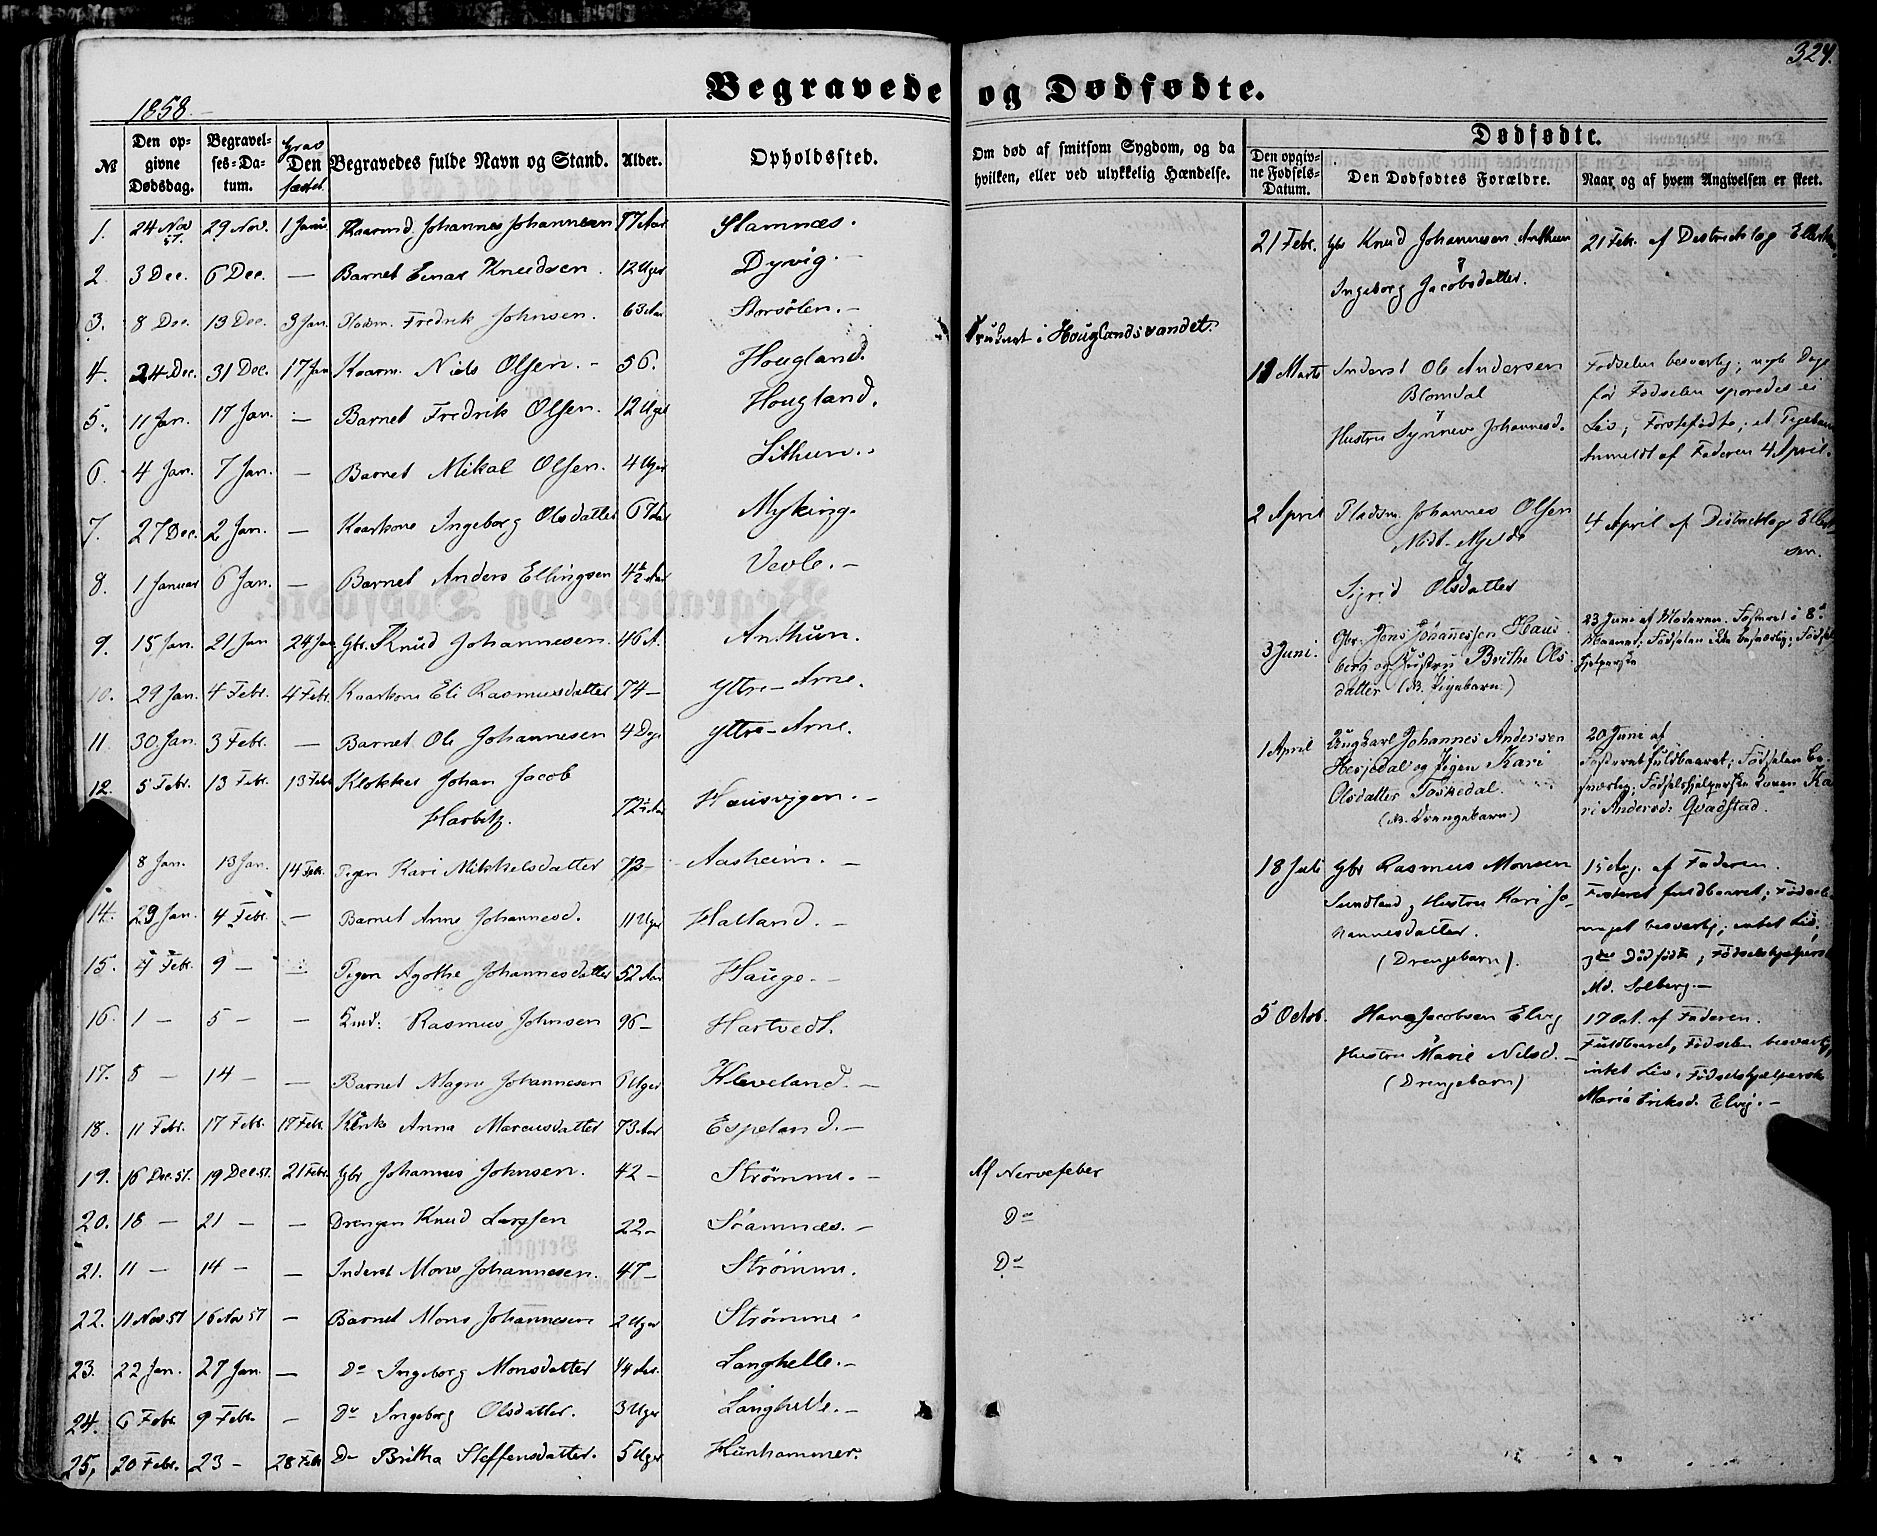 324.
Begravede og Dødfødte.
1858.
№ Den opgivne Dødsdag. Begravelses-Datum. Gravfæstet Den Begravedes fulde Navn og Stand. Alder. Opholdssted. Om død af smitsom Sygdom, og da hvilken, eller ved ulykkelig Hændelse.
1. 24 Nov 57. 29 Nov. 1 Janu. Kaarmd. Johannes Johannesen 77 Aar Stamnæs.
2. 3 Dec. 6 Dec. — Barnet Einar Knudsen. 12 Uger Dyvig. —
3. 8 Dec. 13 Dec. 3 Jan. Pladsm. Fredrik Johnsen. 63 Aar Storsølen. —
4. 24 Dec. 31 Dec. 17 Jan Kaarm. Niels Olsen. – 56. Hougland. Druknet i Houglandsvandet.
5. 11 Jan. 17 Jan. — Barnet Fredrik Olsen. 12 Uger Hougland.
6. 4 Jan. 7 Jan. – Barnet Mikal Olsen. 4 Uger Lithun.
7. 27 Dec. 2 Jan. — Kaarkone Ingeborg Olsdatter 67 Aar Myking.
8. 1 Januar 6 Jan. — Barnet Anders Ellingsen 4½ Aar Vevle. —
9. 15 Jan. 21 Jan 24 Jan Gbr. Knud Johannesen. 46 A. Anthun.
10. 29 Jan. 4 Febr. 4 Febr. Kaarkone Eli Rasmusdatter 74 – Yttre-Arne.
11. 30 Jan. 3 Febr. — Barnet Ole Johannesen 4 Dage Yttre-Arne.
12. 5 Febr. 13 Febr. 13 Febr Klokker Johan Jacob
Harbitz. 72½ Aar Hausvigen. —
8 Jan. 13 Jan. 14 Febr. Pigen Kari Mikkelsdatter 73 – Aasheim. —
14. 29 Jan. 4 Febr. — Barnet Anne Johannesd. 11 Uger Hatland. —
15. 4 Febr. 9 – Pigen Agothe Johannesdatter 52 Aar Hauge. –
16. 1 – 5 – – Rasmus Johnsen 96 – Hartvedt.
17. 8 – 14 – — Barnet Magne Johannesen 6 Uger Kleveland. —
18. 11 Febr. 17 Febr. 17 Febr. Anna Marcusdatter 73 Aar Espeland. —
19. 16 Dec. 57. 19 Dec. 57. 21 Febr. Gbr Johannes Johnsen. 42 – Strømme. — Af Nervefeber
20. 18 – 21 – — Drengen Knud Larssen 22 – Stamnæs. — Do
21. 11 – 14 – — Inderst Mons Johannesen. 47 – Strømme. Do
22. 11 Nov 57 16 Nov 57 – Barnet Mons Johannesen 2 Uger Strømme
23. 22 Jan. 27 Jan. — Do Ingeborg Monsdatter Langhelle. —
24. 6 Febr. 9 Febr. – Do Ingeborg Olsdatter. 3 Uger Langhelle. —
25, 20 Febr. 23 – 28 Febr Do Britha Steffensdatter. 5 Uger Hunhammer.
Dødfødte.
Den opgivne Fødsels-Datum. Den Dødfødtes Forældre. Naar og af hvem Angivelsen er skeet.
21 Febr. Gbr Knud Johannesen Anthun
og
Ingeborg Jacobsdatter.
21 Febr. af Districtslog
Marts Inderst Ole Andersen
Blomdal
og
Hustru Synneve Johannesd.
Fødselen besværlig; Dage
før Fødselen sporedes ei
Liv; Førstefødte; et Pigebarn
Anmeldt af Faderen 4 April.
2 April Pladsm. Johannes Olsen
Midt-Mjelde
og
Sigrid Olsdatter
4 April af Districtslog Ellert-
sen.
3 Juni. Gbr. Jens Johannessen Haus
berg og Hustru Brithe Ols
datter (NB. Pigebarn.)
23 Juni af Moderen. Fosteret i 8de
Maaned; Fødselen ikke besværlig; Fødsel
hjelperske
1 April Ungkarl Johannes Andersen
Hesjedal og Pigen Kari
Olsdatter Toskedal.
(NB. Drengebarn.)
20 Juni af
Fosteret fuldbaaret; Fødselen be-
sværlig; Fødselshjelperske Konen Ka
ri Andersd: Qvadstad.
18 Juli Gbr Rasmus Monsen
Sundland og Hustru Kari Jo-
hannesdatter.
(Drengebarn).
15 Aug. af Faderen.
Fosteret fuldbaaret; Fødsel
meget besværlig; intet Liv,
3die Dødfødte, Fødselshjelpersk
Md. Solberg. —
5 Octob. Hans Jacobsen Elvig
og
Hustru Marie Nilsd. —
(Drengebarn)
17 Oct. af Faderen.
Fuldbaaret, Fødselen besværlig,
intet Liv, Fødselshjælpersk
Marie Eriksd. Elvig. –